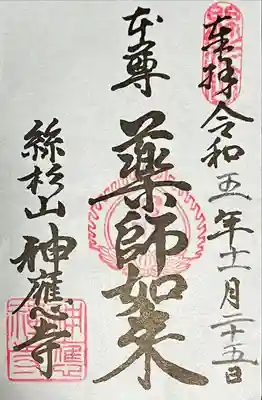 奉拝 令和五年十一月二十五日
本尊 薬師如来
絲杉山 神應寺